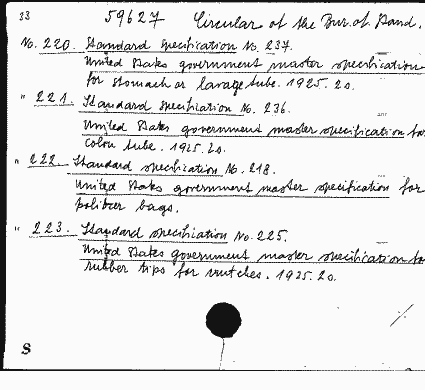 33 59627 Circular of the Bur. of Stand.
No. 220. Standard specification No. 237.
United States government master specification
for stomach or lavage tube. 1925. 20.
" 221. Standard specification No. 236.
United States government master specification for
colon tube. 1925. 20.
" 222. Standard specification No. 218.
United States government master specification for
politzer bags.
" 223. Standard specification No. 225.
United States government master specification for
rubber tips for crutches. 1925. 20.
S